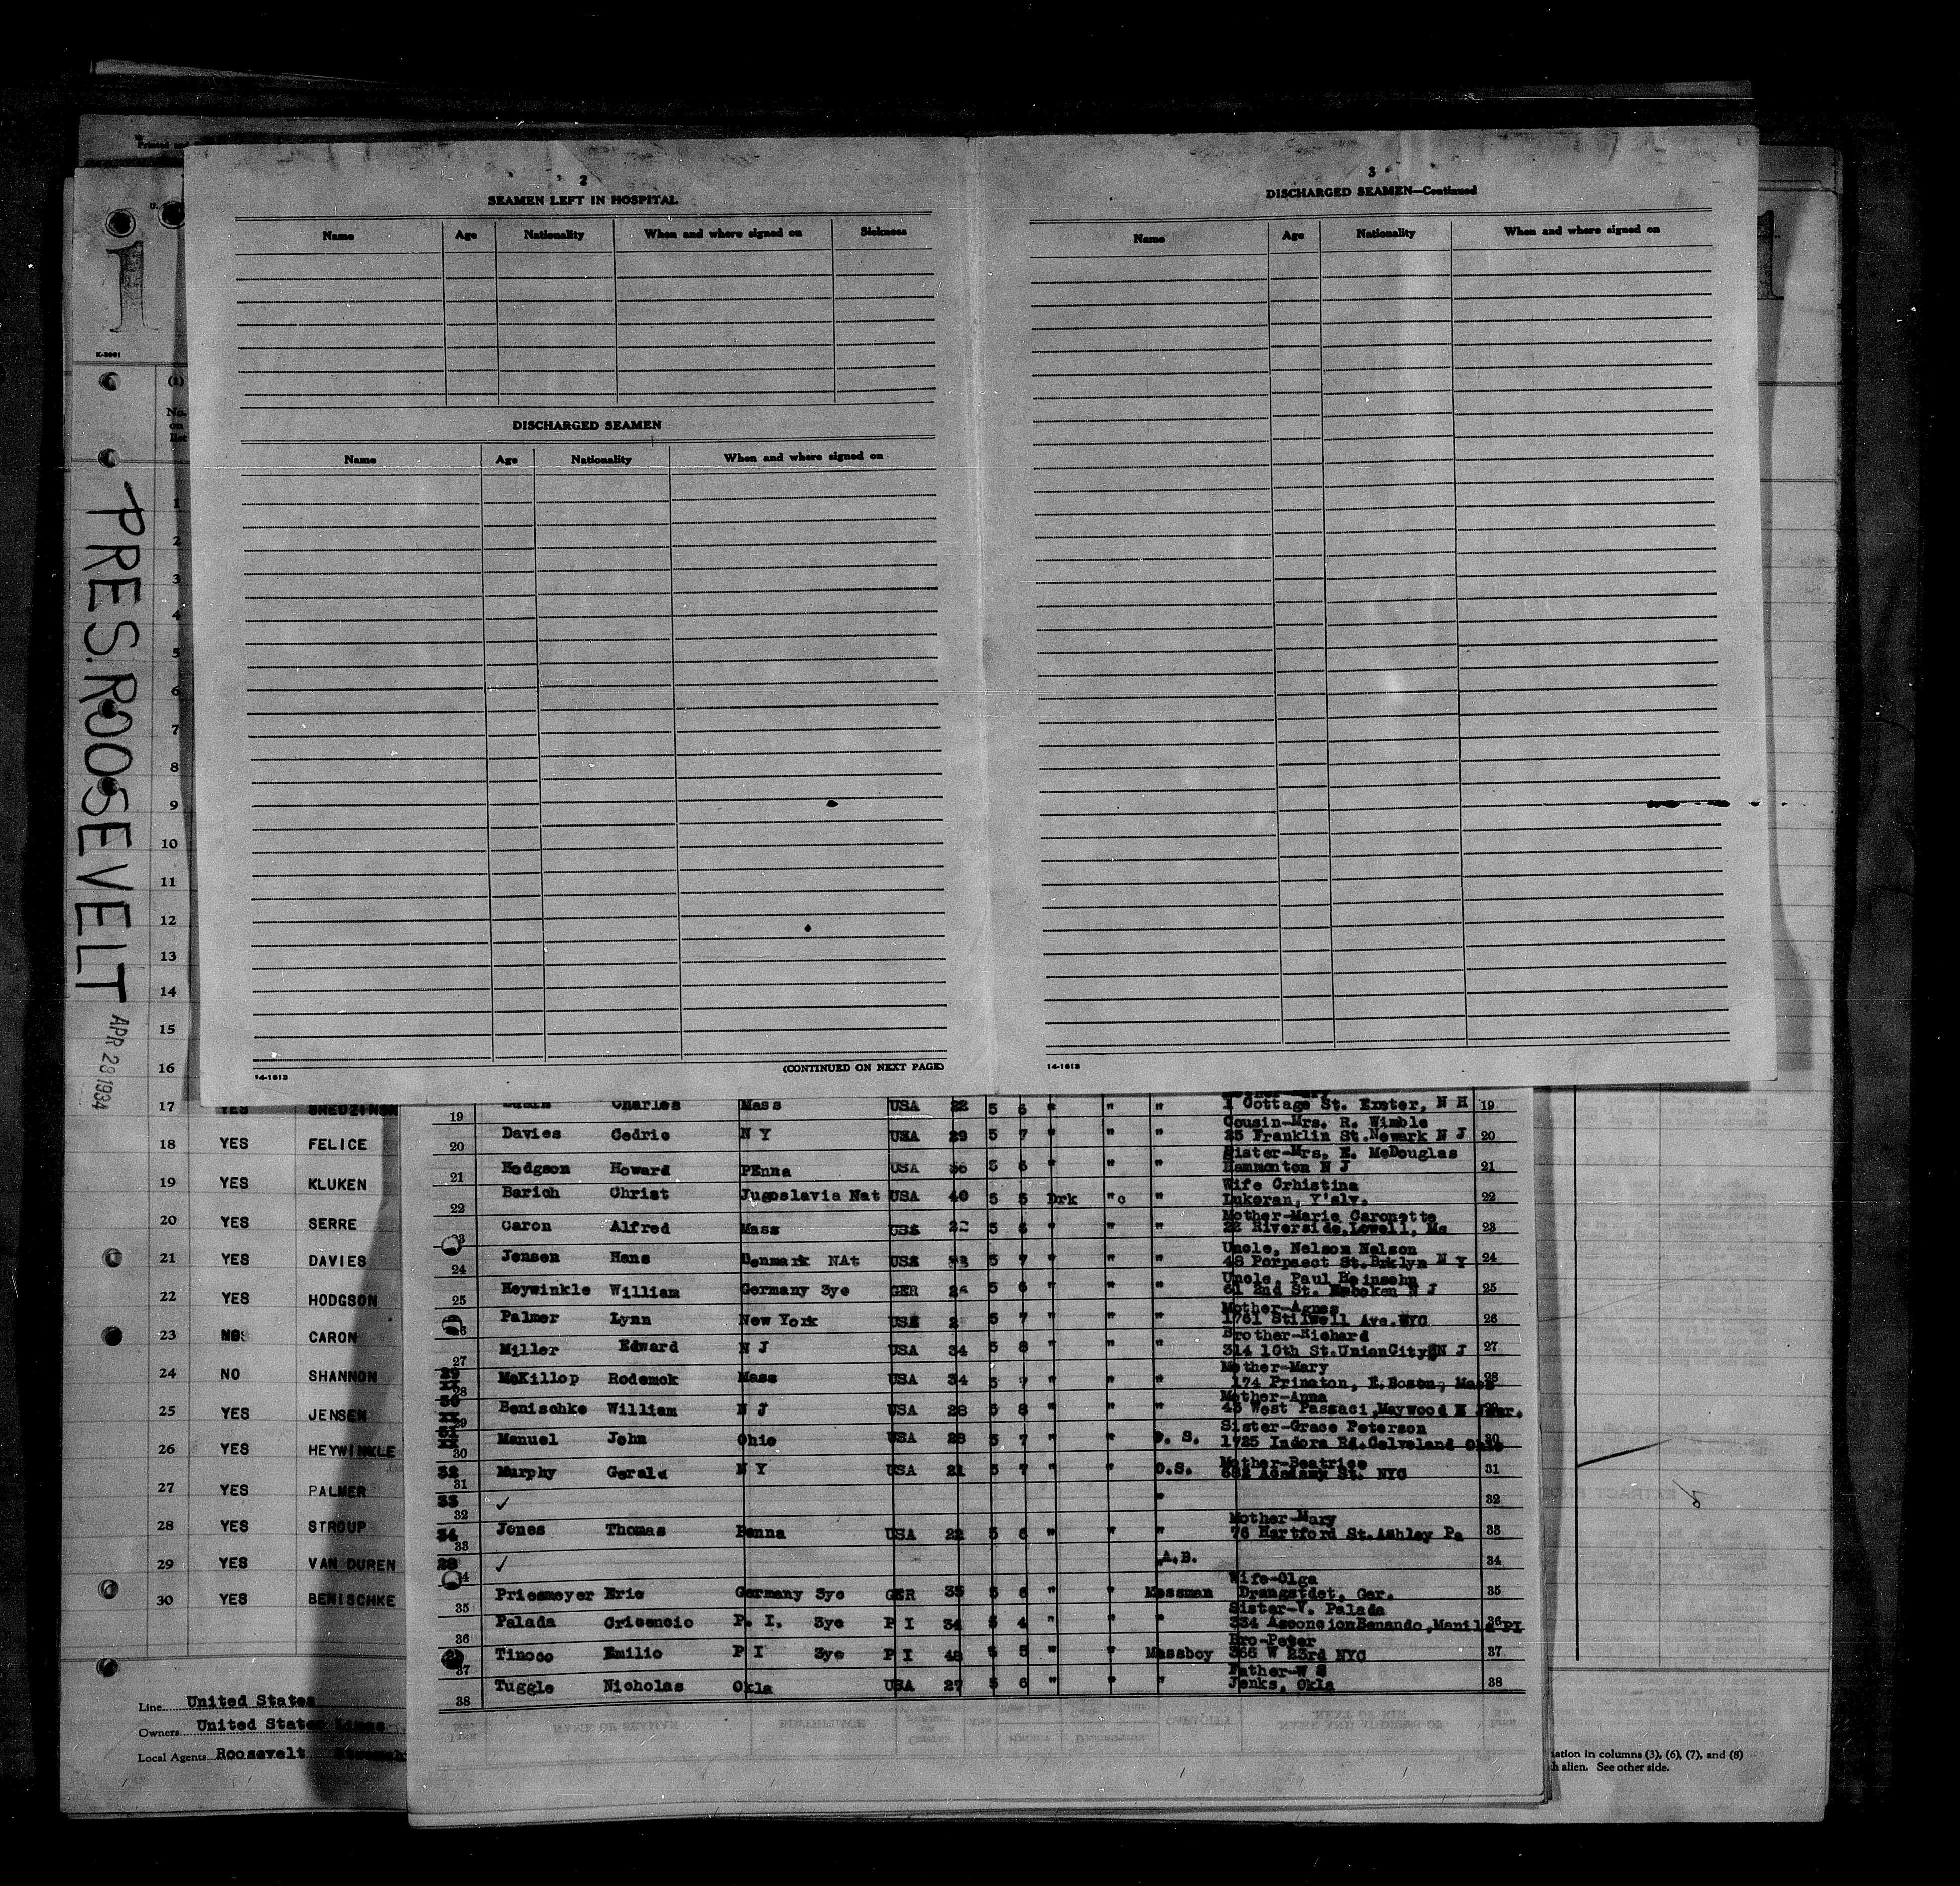 2
SEAMEN LEFT IN HOSPITAL
Name Age Nationality When and where signed on Sickness
DISCHARGED SEAMEN
Name Age Nationality When and where signed on
14-1613 (CONTINUED ON NEXT PAGE)
3
DISCHARGED SEAMEN—Continued
Name Age Nationality When and where signed on
14-1613
PRES. ROOSEVELT
APR 28 1934
1
K-2661
(1)
No. on list
1
2
3
4
5
6
7
8
9
10
11
12
13
14
15
16
17 YES
18 YES FELICE
19 YES KLUKEN
20 YES SERRE
21 YES DAVIES
22 YES HODGSON
23 CARON
24 NO SHANNON
25 YES JENSEN
26 YES HEYWINKLE
27 YES PALMER
28 YES STROUP
29 YES VAN DUREN
30 YES BENISCHKE
Line United States
Owners United States Lines
Local Agents Roosevelt
19 Charles Mass USA 22 5 6 " " " 1 Cottage St. Exeter, N H 19
Cousin-Mrs. R. Wimble
20 Davies Cedric N Y USA 29 5 7 " " " 25 Franklin St.Newark N J 20
Sister-Mrs, E. McDouglas
21 Hodgson Howard PEnna USA 36 5 6 " " " Hammonton N J 21
Wife Crhistina
22 Barich Christ Jugoslavia Nat USA 40 5 5 Drk "c " Lukoran, Y'slv. 22
Mother-Marie Caronette
23 Caron Alfred Mass USA 5 6 " " " 22 Riverside,Lowell, Ms 23
Uncle, Nelson Nelson
24 Jensen Hans Denmark NAt USA 33 5 7 " " " 48 Porpsect St.Brklyn N Y 24
Uncle, Paul Heinsohn
25 Heywinkle William Germany 3ye GER 5 6 " " " 61 2nd St. Hoboken N J 25
Mother-Agnes
26 Palmer Lynn New York USA 5 7 " " " 1761 Stilwell Ave.NYC 26
Brother-Richard
27 Miller Edward N J USA 34 5 8 " " " 314 10th St.UnionCity N J 27
Mother-Mary
28 McKillop Rodemck Mass USA 34 5 7 " " " 174 Princton, E.Boston, Mass 28
Mother-Anna
29 Benischke William N J USA 28 5 8 " " " 43 West Passaci,Maywood N J 29
Sister-Grace Peterson
30 Manuel John Ohio USA 28 5 7 " " O. S. 1725 Indora Rd.Celveland Ohio 30
Mother-Beatrice
32 31 Murphy Gerald N Y USA 21 5 7 " " O.S. Academy St. NYC 31
33 32 ✓ " 32
Mother-Mary
34 33 Jones Thomas Penna USA 22 5 6 " " " 76 Hartford St.Ashley Pa 33
✓ A.B. 34
Wife-Olga
35 Priesmeyer Eric Germany 3ye GER 35 5 6 " " Messman Drangstdet, Ger. 35
Sister-V. Palada
36 Palada Cricencio P. I. 3ye P I 34 5 4 " " " 334 AsconcionBenando,Manila PI 36
Bro-Peter
37 Tinoco Emilio P I 3ye P I 48 5 5 " " Messboy 365 W 23rd NYC 37
Father-W S
38 Tuggle Nicholas Okla USA 27 5 6 " " " Jenks, Okla 38
ation in columns (3), (6), (7), and (8)
h alien. See other side.